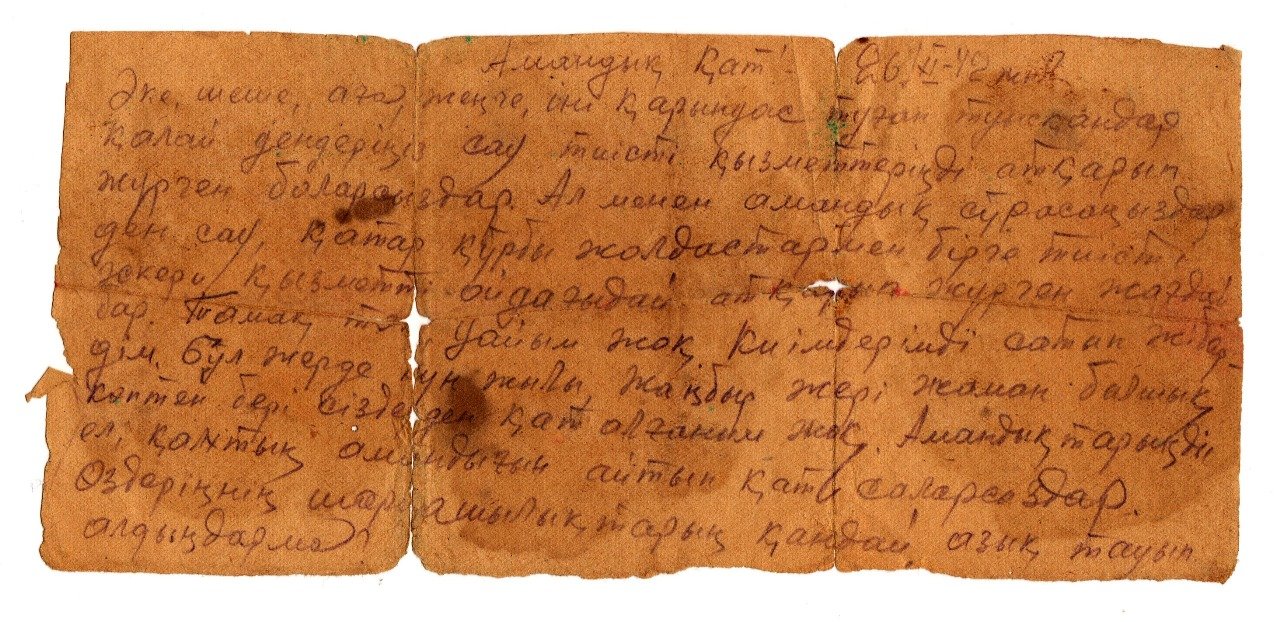 Амандық Қат! 26/XI-42 жыл
Әке, шеше, аға, жеңге, іні қарындас туған туысқандар
Қалай дендеріңіз сау тиісті қызметтеріңді атқарып
жүрген боларсыздар. Ал менен амандық сұрасаңыздар
ден сау, қатар құрбы жолдастармен бірге тиісті
әскери қызметті ойдағыдай атқарып жүрген жағдай
бар. Тамақ уайым жоқ Киімдерімді сатып жібер-
дім. Бұл жерде күн жылы, жаңбыр жері жаман балшық
көптен бері сіздерден қат алғаным жоқ. Амандықтарыңды
ел, қалхтың амандығын айтып қат саларсыздар.
Өздеріңнің шаруашылықтарың қандай азық тауып
алдыңдарма?